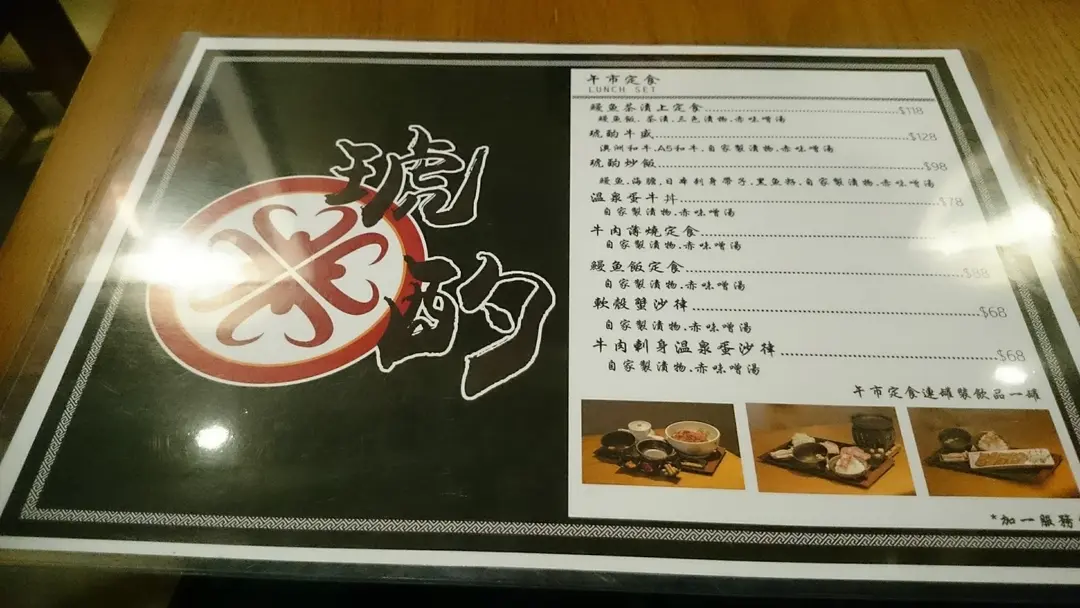 琥
酌
午市定食
LUNCH SET
鰻魚茶漬上定食 $118
鰻魚飯.茶漬.三色漬物.赤味噌湯
琥酌牛盛 $128
澳洲和牛.A5和牛.自家製漬物.赤味噌湯
琥酌炒飯 $98
鰻魚.海膽.日本刺身帶子.黑魚籽.自家製漬物.赤味噌湯
温泉蛋牛丼 $78
自家製漬物.赤味噌湯
牛肉薄燒定食
自家製漬物.赤味噌湯
鰻魚飯定食 $88
自家製漬物.赤味噌湯
軟殼蟹沙律 $68
自家製漬物.赤味噌湯
牛肉刺身温泉蛋沙律 $68
自家製漬物.赤味噌湯
午市定食連罐裝飲品一罐
*加一服務